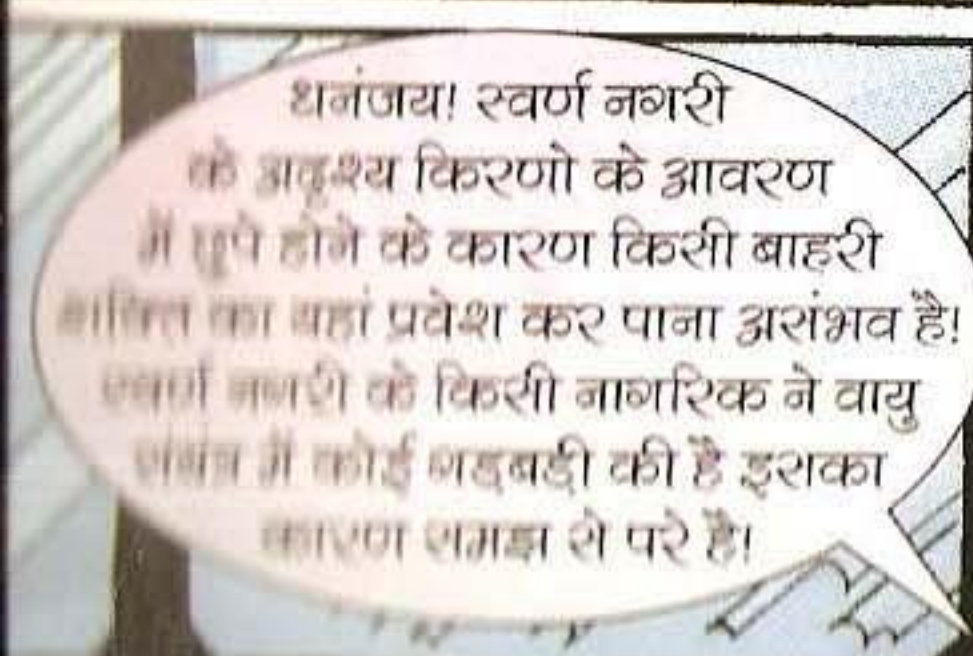 धनंजय! स्वर्ण नगरी
के अदृश्य किरणो के आवरण
में छुपे होने के कारण किसी बाहरी
शक्ति का यहां प्रवेश कर पाना असंभव है!
स्वर्ण नगरी के किसी नागरिक ने वायु
संयंत्र में कोई गड़बड़ी की है इसका
कारण समझ से परे है!